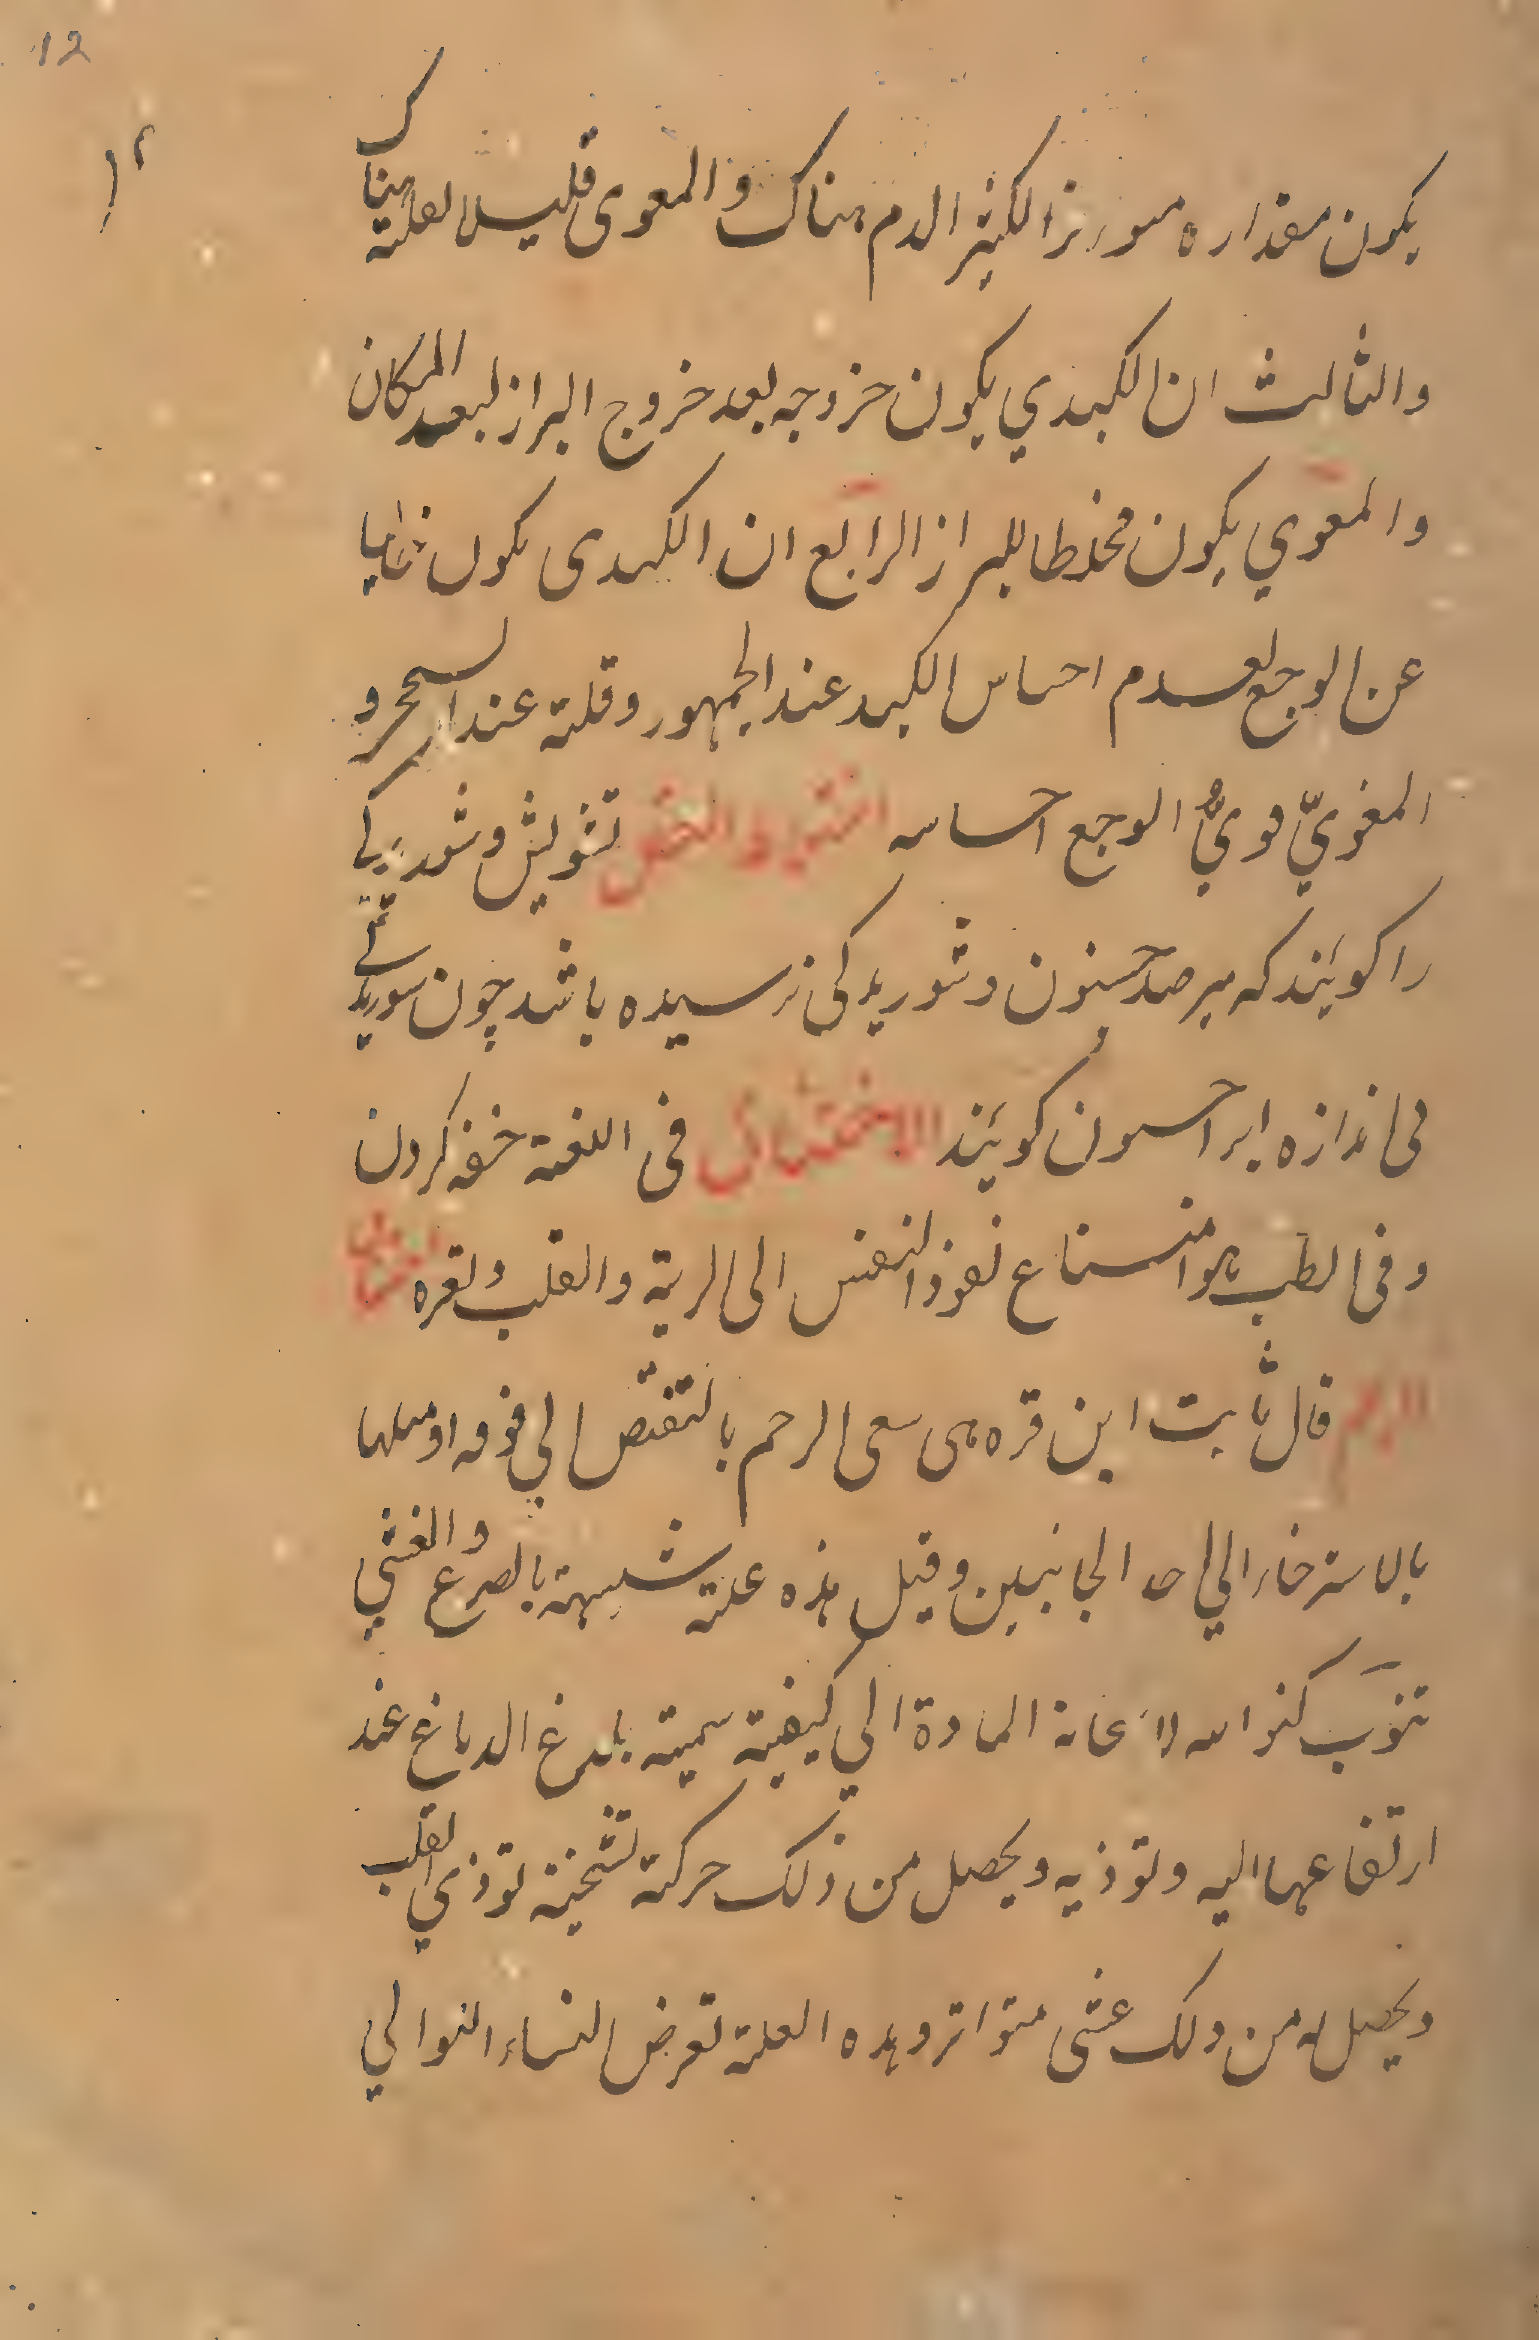 12
۱۲
يكون مقداره لكثير الدم هناك والمعوى قليلا لقلته هناك
والثالث ان الكبدي يكون خروجه بعد خروج البراز لبعد المكان
والمعوي يكون مخلطا للبراز الرابع ان الكبدى يكون خاليا
عن الوجع لعدم احساس الكبد عند الجمهور وقلته عند السحر و
المعويّ قويّ الوجع احساسه اختلاط العقل تشويش وشوريدكى
را كويند كه بر حد جنون وشوريدكى نرسيده باشد چون شوريدكى
بى اندازه ايرا جنون كويند الاختناق فى اللغة خفه كردن
وفى الطب هو امتناع نفوذ النفس الى الرية والقلب وتعره اختناق
الرحم قال ثابت ابن قره هى سعى الرحم بالتقلص الي فوق او ميلها
بالاسترخاء الي احد الجانبين وقيل هذه علته شبيهة بالصرع والغشي
تنوب كنوايبه لاستحالة المادة الي كيفية سمية يلدغ الدماغ عند
ارتفاعها اليه وتوذيه ويحصل من ذلك حركة تشنجية توذي القلب
ويحصل له من ذلك غشى متواتر وهذه العلته تعرض النساء اللوالي